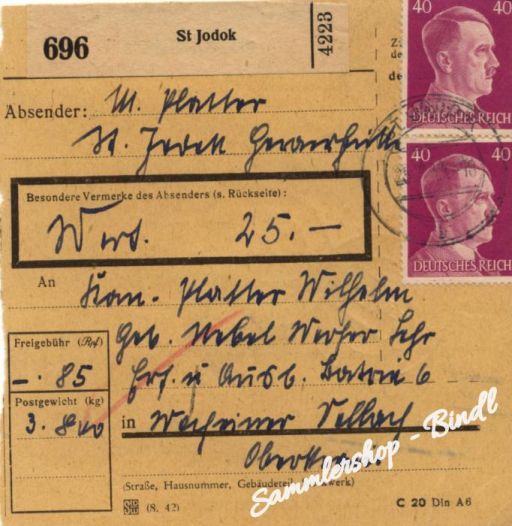 696
St Jodok
4223
40 40
DEUTSCHES REICH
40 40
DEUTSCHES REICH
Absender: M. Platter
St. Jodok Geraerhütte
Besondere Vermerke des Absenders (s. Rückseite):
Wert. 25.–
An Kan. Platter Wilhelm
Geb. Nebel Werfer Lehr
Ers. u Ausb. Batrie 6
in
Freigebühr (Rpf)
–.85
Postgewicht (kg)
3.800
(Straße, Hausnummer, Gebäudeteil, Stockwerk)
(8. 42)
C 20 Din A6
Sammlershop - Bindl